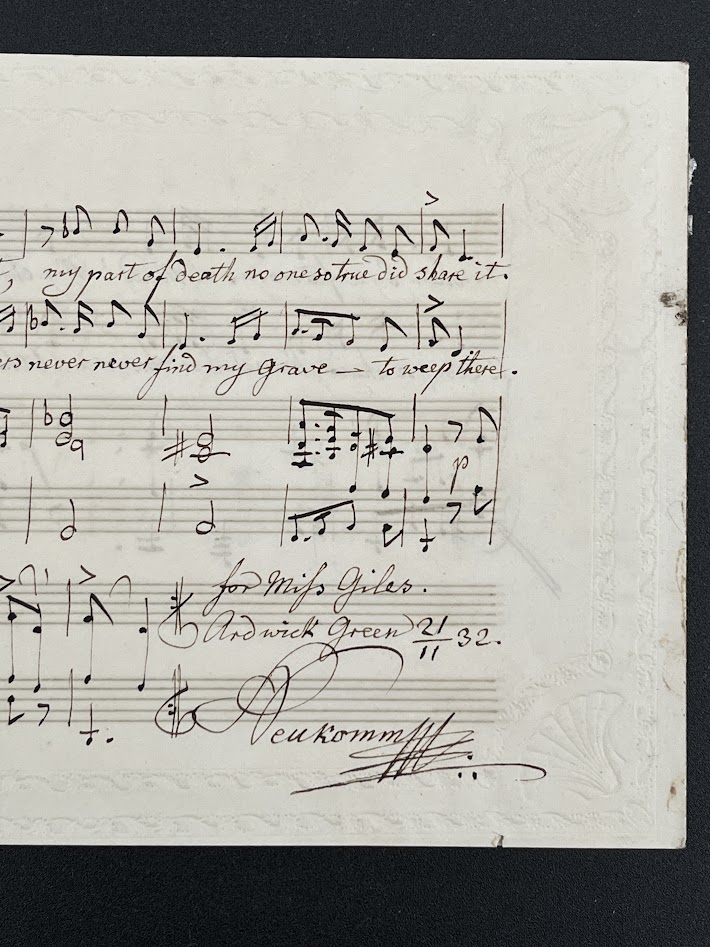 my part of death no one so true did share it.
never never find my grave — to weep there.
p
for Miſs Giles.
Ardwick Green 21/11 32.
Neukomm